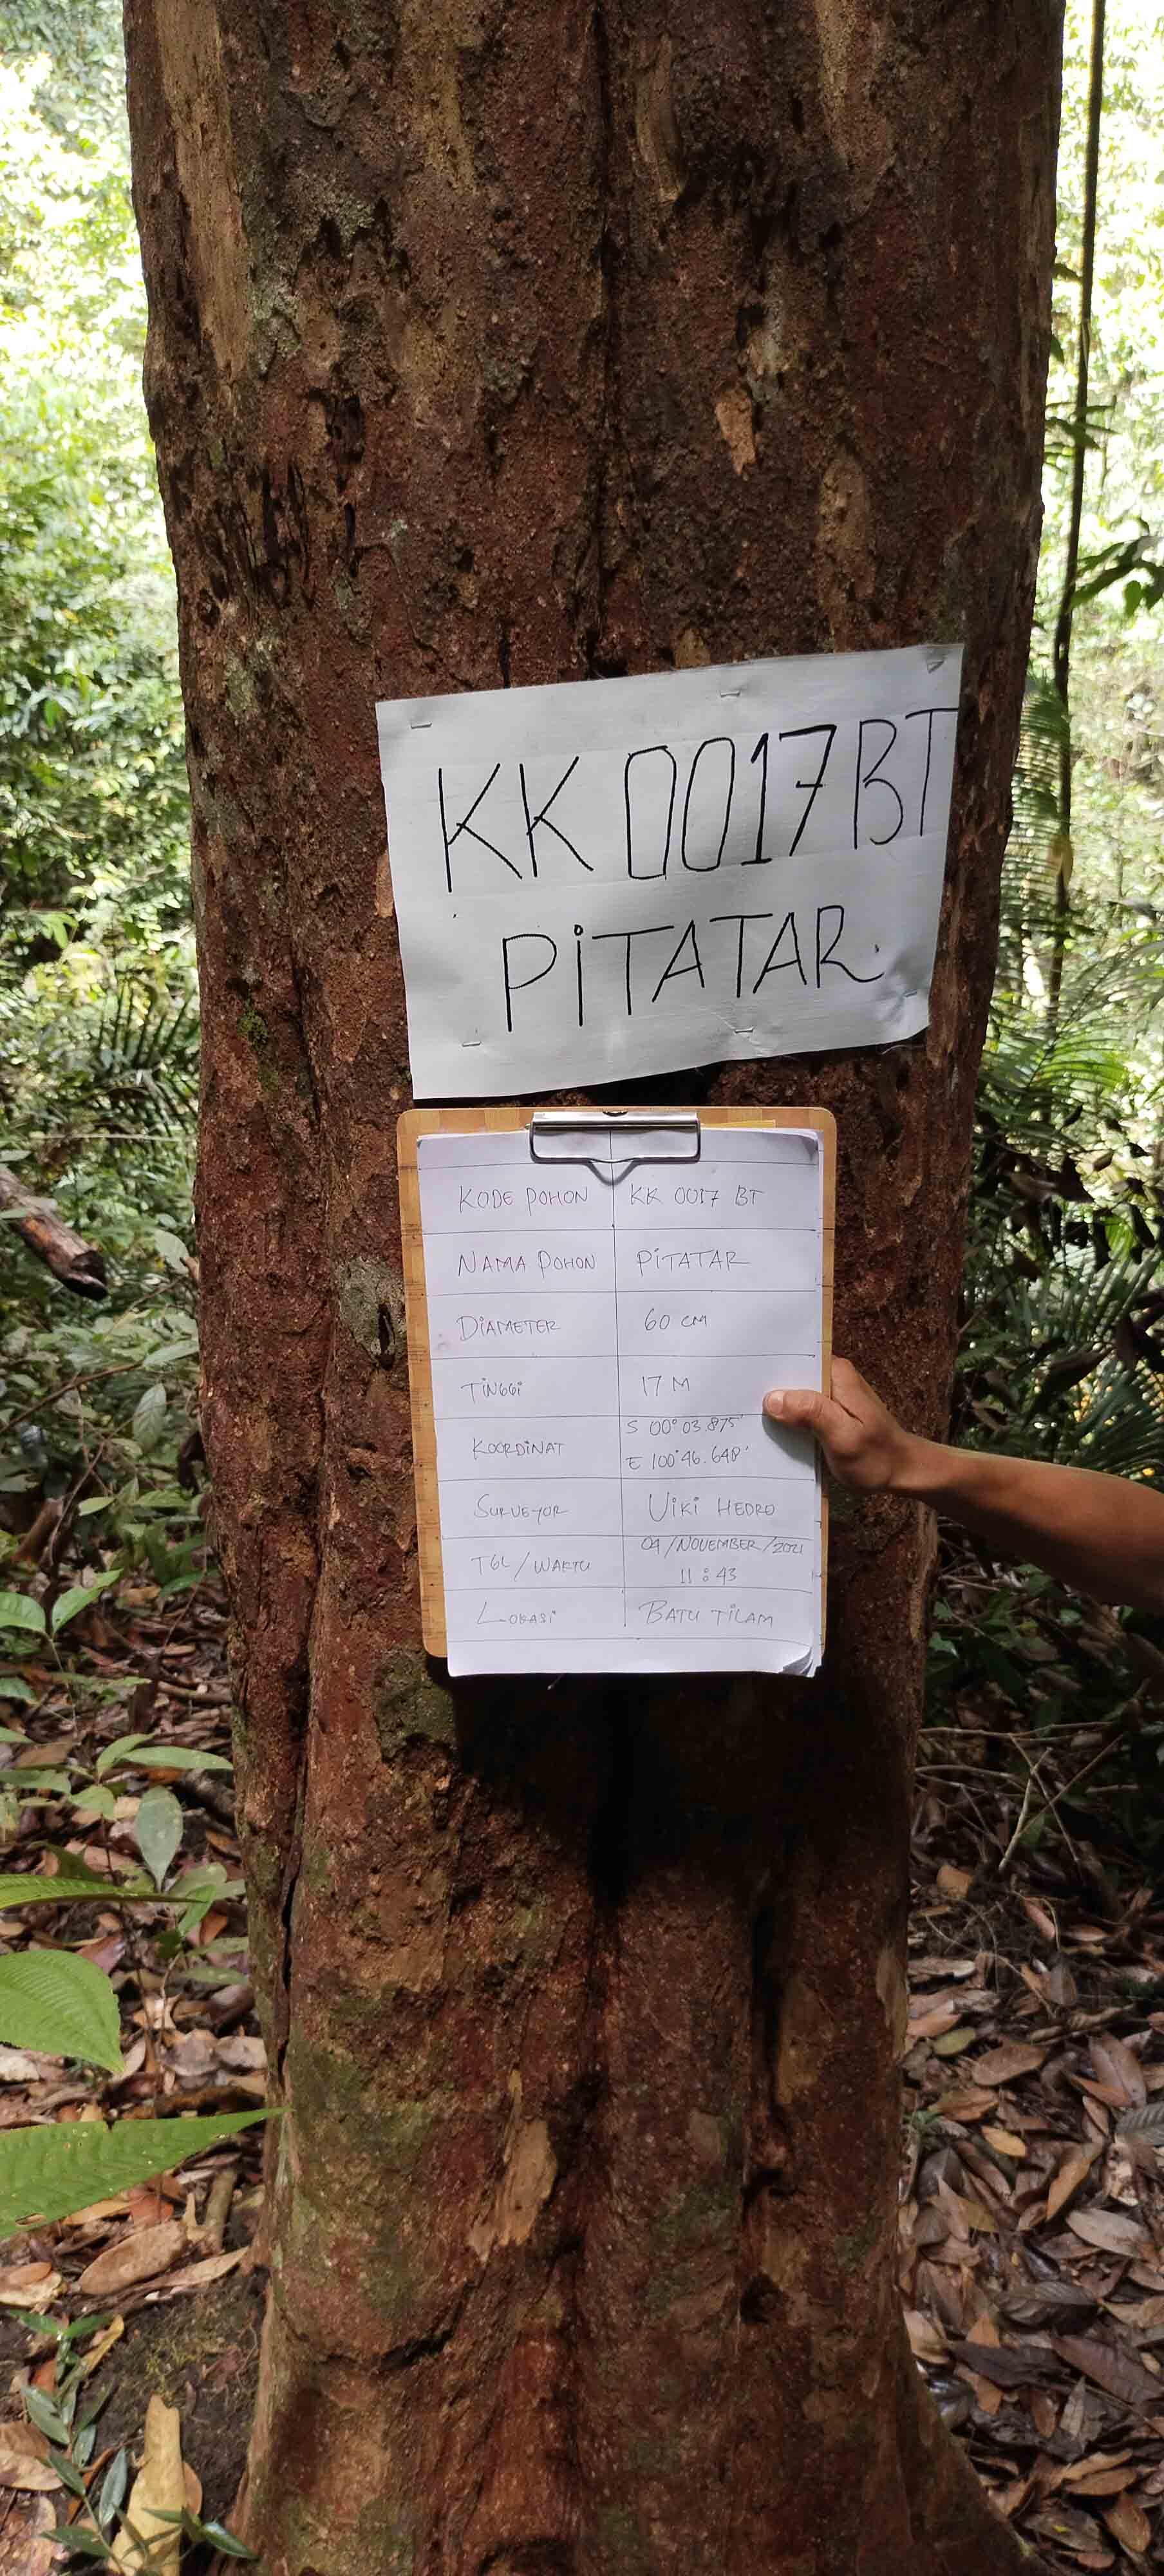 KK 0017 BT
PiTATAR.
KODE POHON KK 0017 BT
NAMA POHON PiTATAR
DiAMETER 60 CM
TiNGGi 17 M
KOORDiNAT S 00° 03.875'
E 100°46.648'
SURVEYOR ViKi HEDRO
TGL / WAKTU /NOVEMBER/2021
11 : 43
LOKASi BATU TiLAM